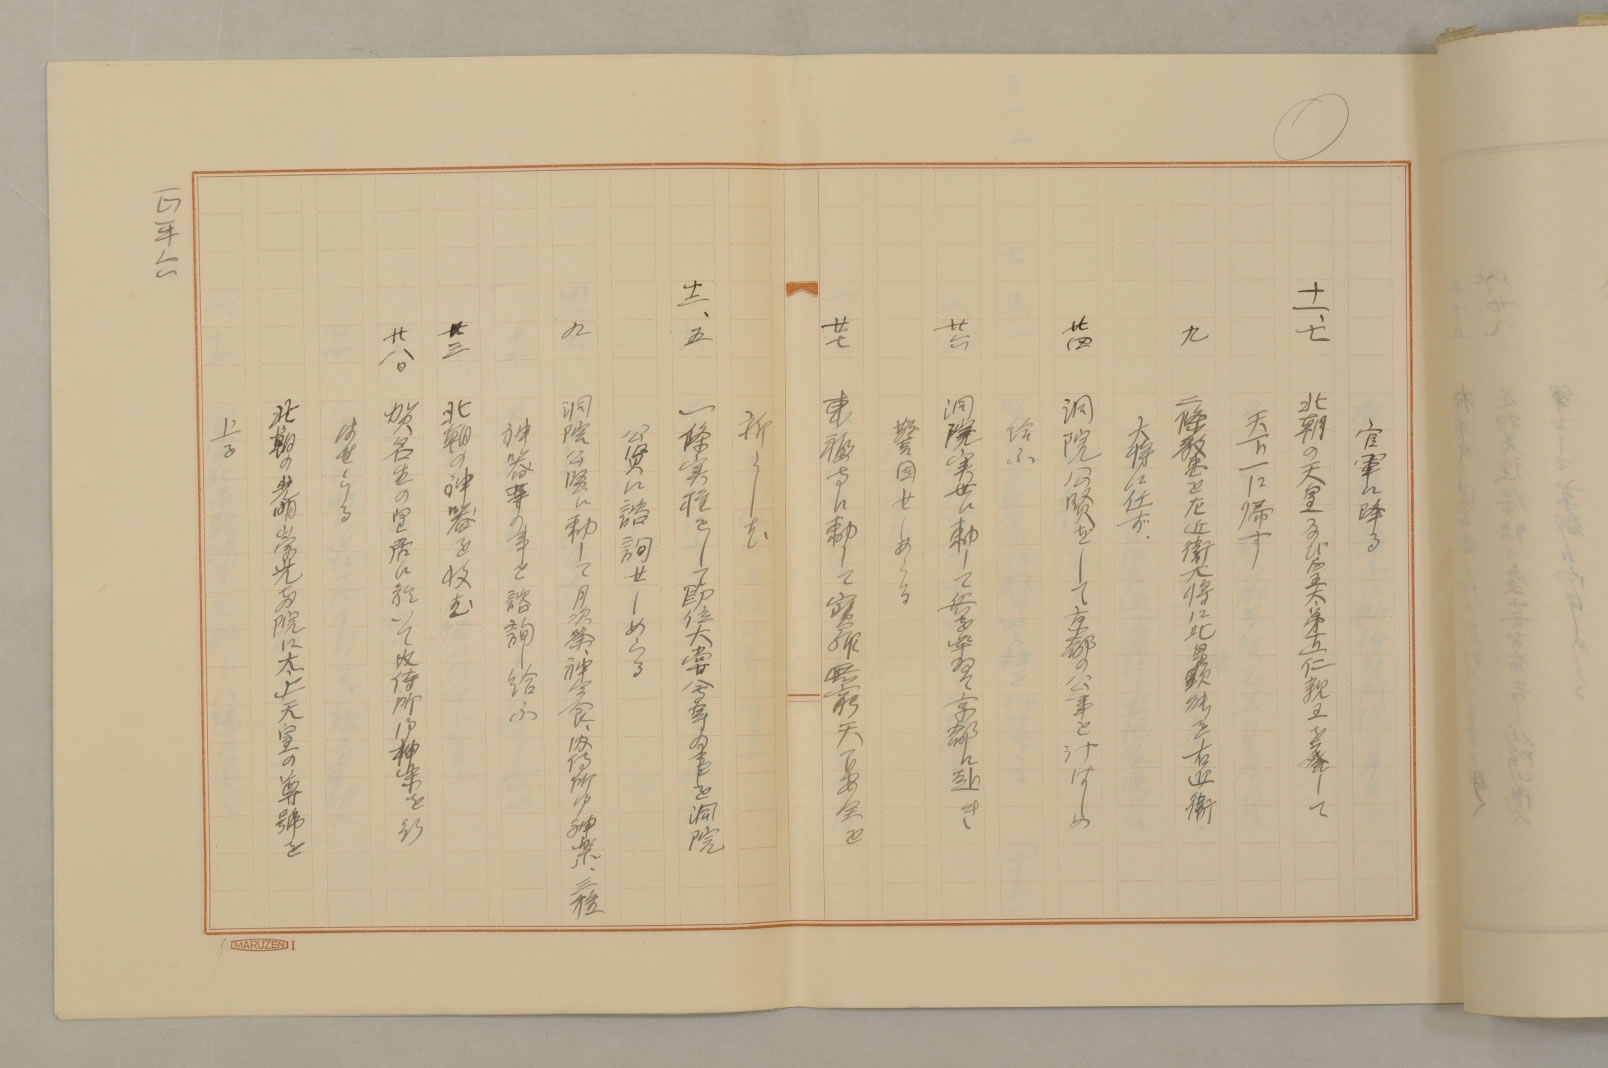 官軍に降る
十一、七 北朝の天皇及び皇太弟直仁親王を廃して
天下一に帰す
九 二條教基を左近衛大将に北畠顕能を右近衛
大将に任ず、
廿四 洞院公賢をして京都の公事を計はしめ
給ふ
廿六 洞院実世に勅して兵を率ゐて京都に赴き
警固せしめらる
廿七 東福寺に勅して宝祚無窮天下安全を
祈らしむ
十二、五 一條実種をして即位大嘗会等の事を洞院
公賢に諮詢せしめらる
九 洞院公賢に勅して月次祭、神今食、内侍所御神楽、三種
神器等の事を諮詢し給ふ
廿三 北朝の神器を收む
廿八日 賀名生の皇居に於いて内侍所御神楽を行
はせらる
北朝の光明崇光両院に太上天皇の尊號を
上る
正平六
MARUZEN I